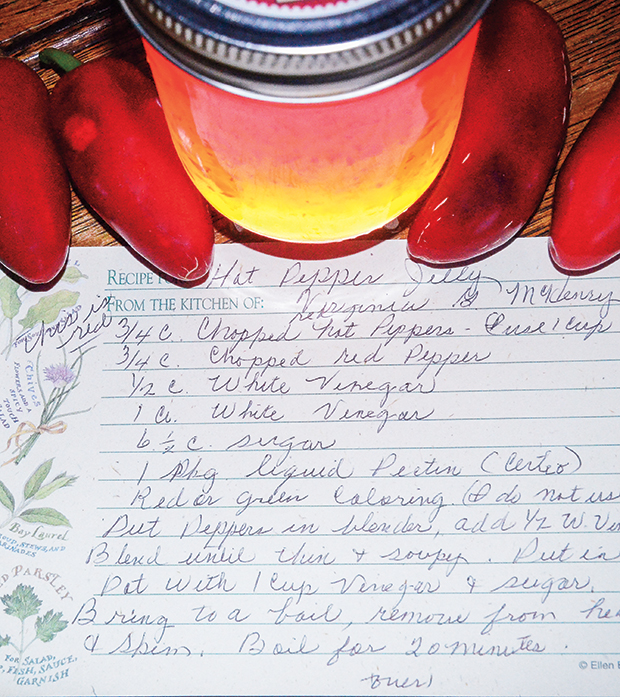 RECIPE Hot Pepper Jelly
FROM THE KITCHEN OF: Virginia G McKenry
red
3/4 c. Chopped Hot Peppers - I use 1 cup
3/4 c. Chopped red Pepper
1/2 c. White Vinegar
1 C. White Vinegar
6 1/2 c. sugar
1 Pkg liquid Pectin (Certeo)
Red or green Coloring. (I do not us
Put Peppers in blender, add 1/2 W. Vin
Blend until thin & soupy. Put in
Pot with 1 Cup Vinegar & sugar.
Bring to a boil, remove from he
& skim. Boil for 20 minutes.
over)
CHIVES
FLOWERS AND A
SPICY
TOUCH
BAY LAUREL
SOUP, STEWS, AND
MARINADES
PARSLEY
FOR SALAD,
FISH, SAUCE,
GARNISH
© Ellen